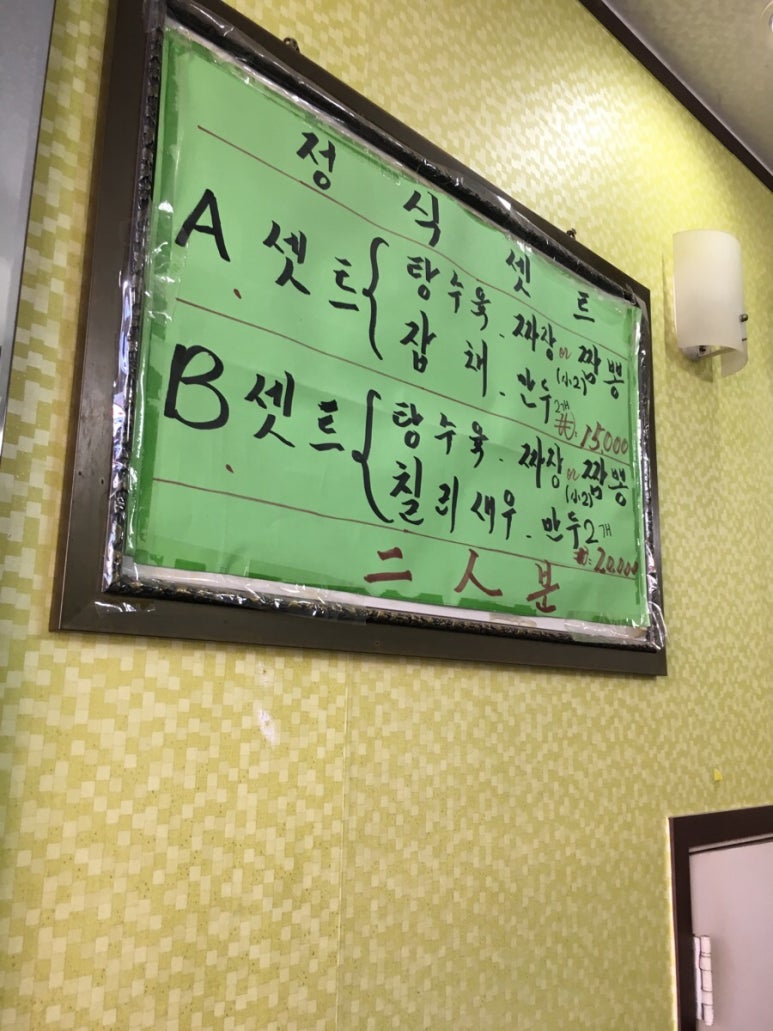 정식셋트
A 셋트 { 탕수육. 짜장 or 짬뽕
(小2)
잡채. 만두 2개
₩: 15,000
B 셋트 { 탕수육. 짜장 or 짬뽕
(小2)
칠리새우. 만두2개
₩: 20,000
二人분